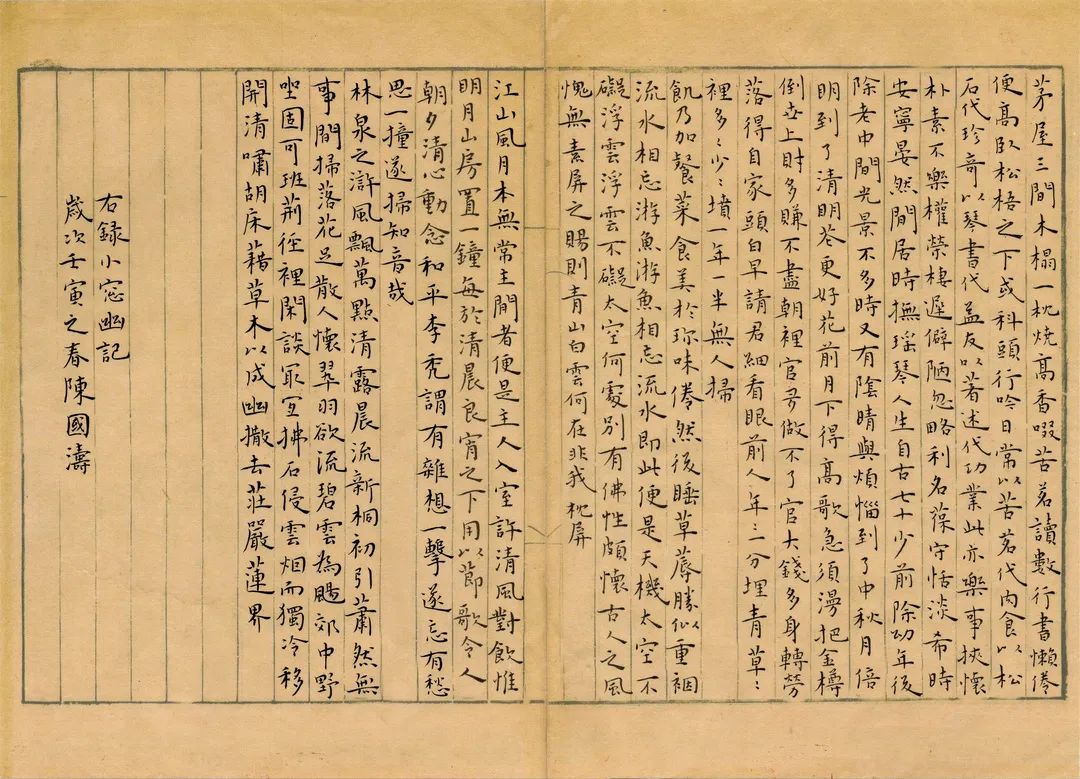 茅屋三間木榻一枕燒高香啜苦茗讀數行書懶倦
便高臥松梧之下或科頭行吟日常以苦茗代肉食以松
石代珍奇以琴書代益友以著述代功業此亦樂事挾懷
朴素不樂權榮棲遲僻陋忽略利名葆守恬淡希時
安寧晏然閒居時撫瑤琴人生自古七十少前除幼年後
除老中間光景不多時又有陰晴與煩惱到了中秋月倍
明到了清明花更好花前月下得高歌急須漫把金樽
倒世上財多賺不盡朝裡官多做不了官大錢多身轉勞
落得自家頭白早請君細看眼前人年〻一分埋青草〻
裡多〻少〻墳一年一半無人掃
飢乃加餐菜食美於珍味倦然後睡草蓐勝似重裀
流水相忘游魚游魚相忘流水即此便是天機太空不
礙浮雲浮雲不礙太空何處別有佛性頗懷古人之風
愧無素屏之賜則青山白雲何在非我枕屏
江山風月本無常主閒者便是主人入室許清風對飲惟
明月山房置一鐘每於清晨良宵之下用以節歌令人
朝夕清心動念和平李禿謂有雜想一擊遂忘有愁
思一撞遂掃知音哉
林泉之滸風飄萬點清露晨流新桐初引蕭然無
事閒掃落花足散人懷翠羽欲流碧雲為颺郊中野
坐固可班荊徑裡閑談冣宜拂石侵雲烟而獨冷移
開清嘯胡床藉草木以成幽撤去莊嚴蓮界
右錄小窓幽記
歲次壬寅之春陳國濤